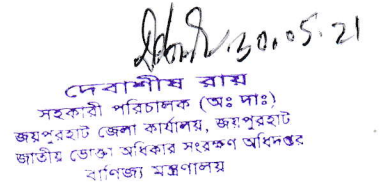 30.05.21
দেবাশীষ রায়
সহকারী পরিচালক (অঃ দাঃ)
জয়পুরহাট জেলা কার্যালয়, জয়পুরহাট
জাতীয় ভোক্তা অধিকার সংরক্ষণ অধিদপ্তর
বাণিজ্য মন্ত্রণালয়